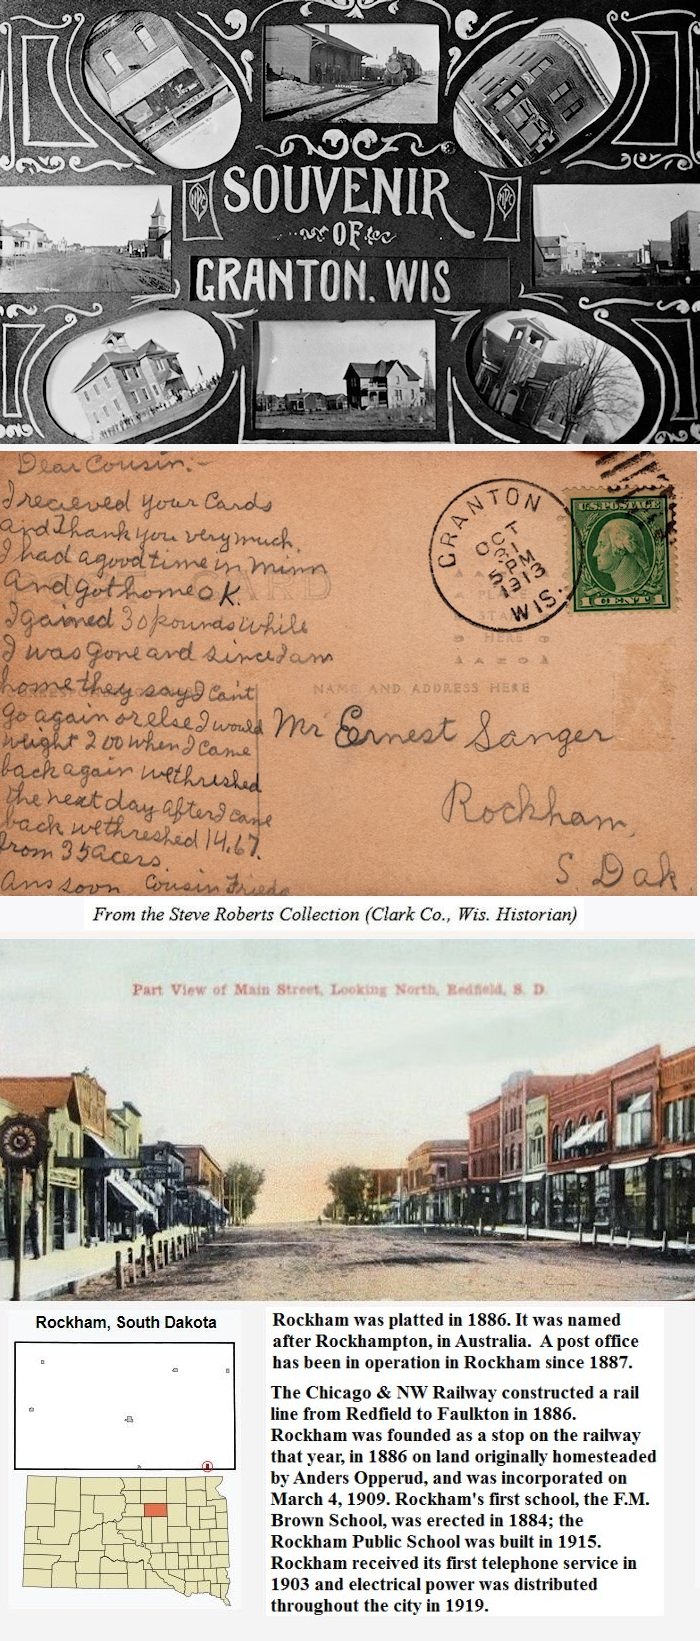 SOUVENIR
OF
GRANTON, WIS
Dear Cousin:-
I recieved your Cards
and Thank you very much.
I had a good time in Minn
And got home O.K.
I gained 30 pounds while
I was Gone and since I am
home they say I can't
Go again or else I would
weight 200 when I came
back again we threshed
the next day after I came
back we threshed 14.67.
from 35 acers
Ans soon Cousin Frieda
GRANTON
OCT
31
5 PM
1913
WIS.
U.S. POSTAGE
1 CENT 1
CARD
PLACE
HERE
NAME AND ADDRESS HERE
Mr Ernest Sanger
Rockham,
S. Dak
From the Steve Roberts Collection (Clark Co., Wis. Historian)
Part View of Main Street, Looking North, Redfield, S. D.
Rockham, South Dakota
Rockham was platted in 1886. It was named
after Rockhampton, in Australia. A post office
has been in operation in Rockham since 1887.
The Chicago & NW Railway constructed a rail
line from Redfield to Faulkton in 1886.
Rockham was founded as a stop on the railway
that year, in 1886 on land originally homesteaded
by Anders Opperud, and was incorporated on
March 4, 1909. Rockham's first school, the F.M.
Brown School, was erected in 1884; the
Rockham Public School was built in 1915.
Rockham received its first telephone service in
1903 and electrical power was distributed
throughout the city in 1919.